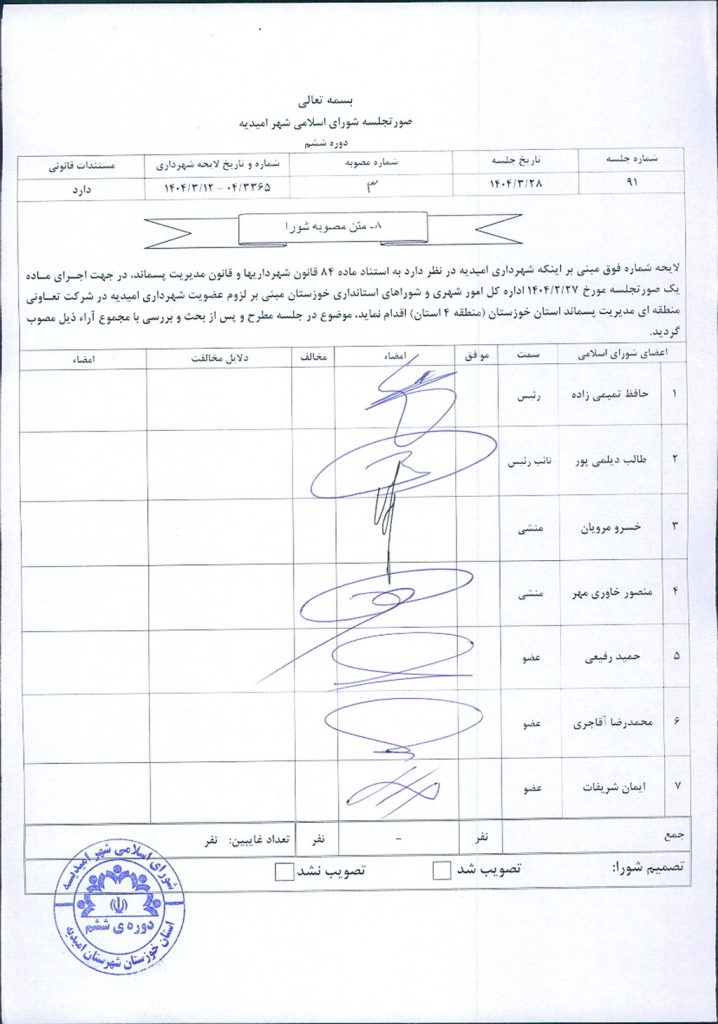 بسمه تعالی
صورتجلسه شورای اسلامی شهر امیدیه
دوره ششم
شماره جلسه تاریخ جلسه شماره مصوبه شماره و تاریخ لایحه شهرداری مستندات قانونی
۹۱ ۱۴۰۴/۳/۲۸ ۳ ۰۴/۳۳۶۵ – ۱۴۰۴/۳/۱۲ دارد
۸- متن مصوبه شورا
لایحه شماره فوق مبنی بر اینکه شهرداری امیدیه در نظر دارد به استناد ماده ۸۴ قانون شهرداریها و قانون مدیریت پسماند، در جهت اجرای ماده
یک صورتجلسه مورخ ۱۴۰۴/۲/۲۷ اداره کل امور شهری و شوراهای استانداری خوزستان مبنی بر لزوم عضویت شهرداری امیدیه در شرکت تعاونی
منطقه ای مدیریت پسماند استان خوزستان (منطقه ۴ استان) اقدام نماید، موضوع در جلسه مطرح و پس از بحث و بررسی با مجموع آراء ذیل مصوب
گردید.
اعضای شورای اسلامی سمت موافق امضاء مخالف دلایل مخالفت امضاء
۱ حافظ تمیمی زاده رئیس
۲ طالب دیلمی پور نائب رئیس
۳ خسرو مرویان منشی
۴ منصور خاوری مهر منشی
۵ حمید رفیعی عضو
۶ محمدرضا آقاجری عضو
۷ ایمان شریفات عضو
جمع نفر – نفر تعداد غایبین: نفر
تصمیم شورا: تصویب شد تصویب نشد
شورای اسلامی شهر امیدیه
دوره ی ششم
استان خوزستان شهرستان امیدیه